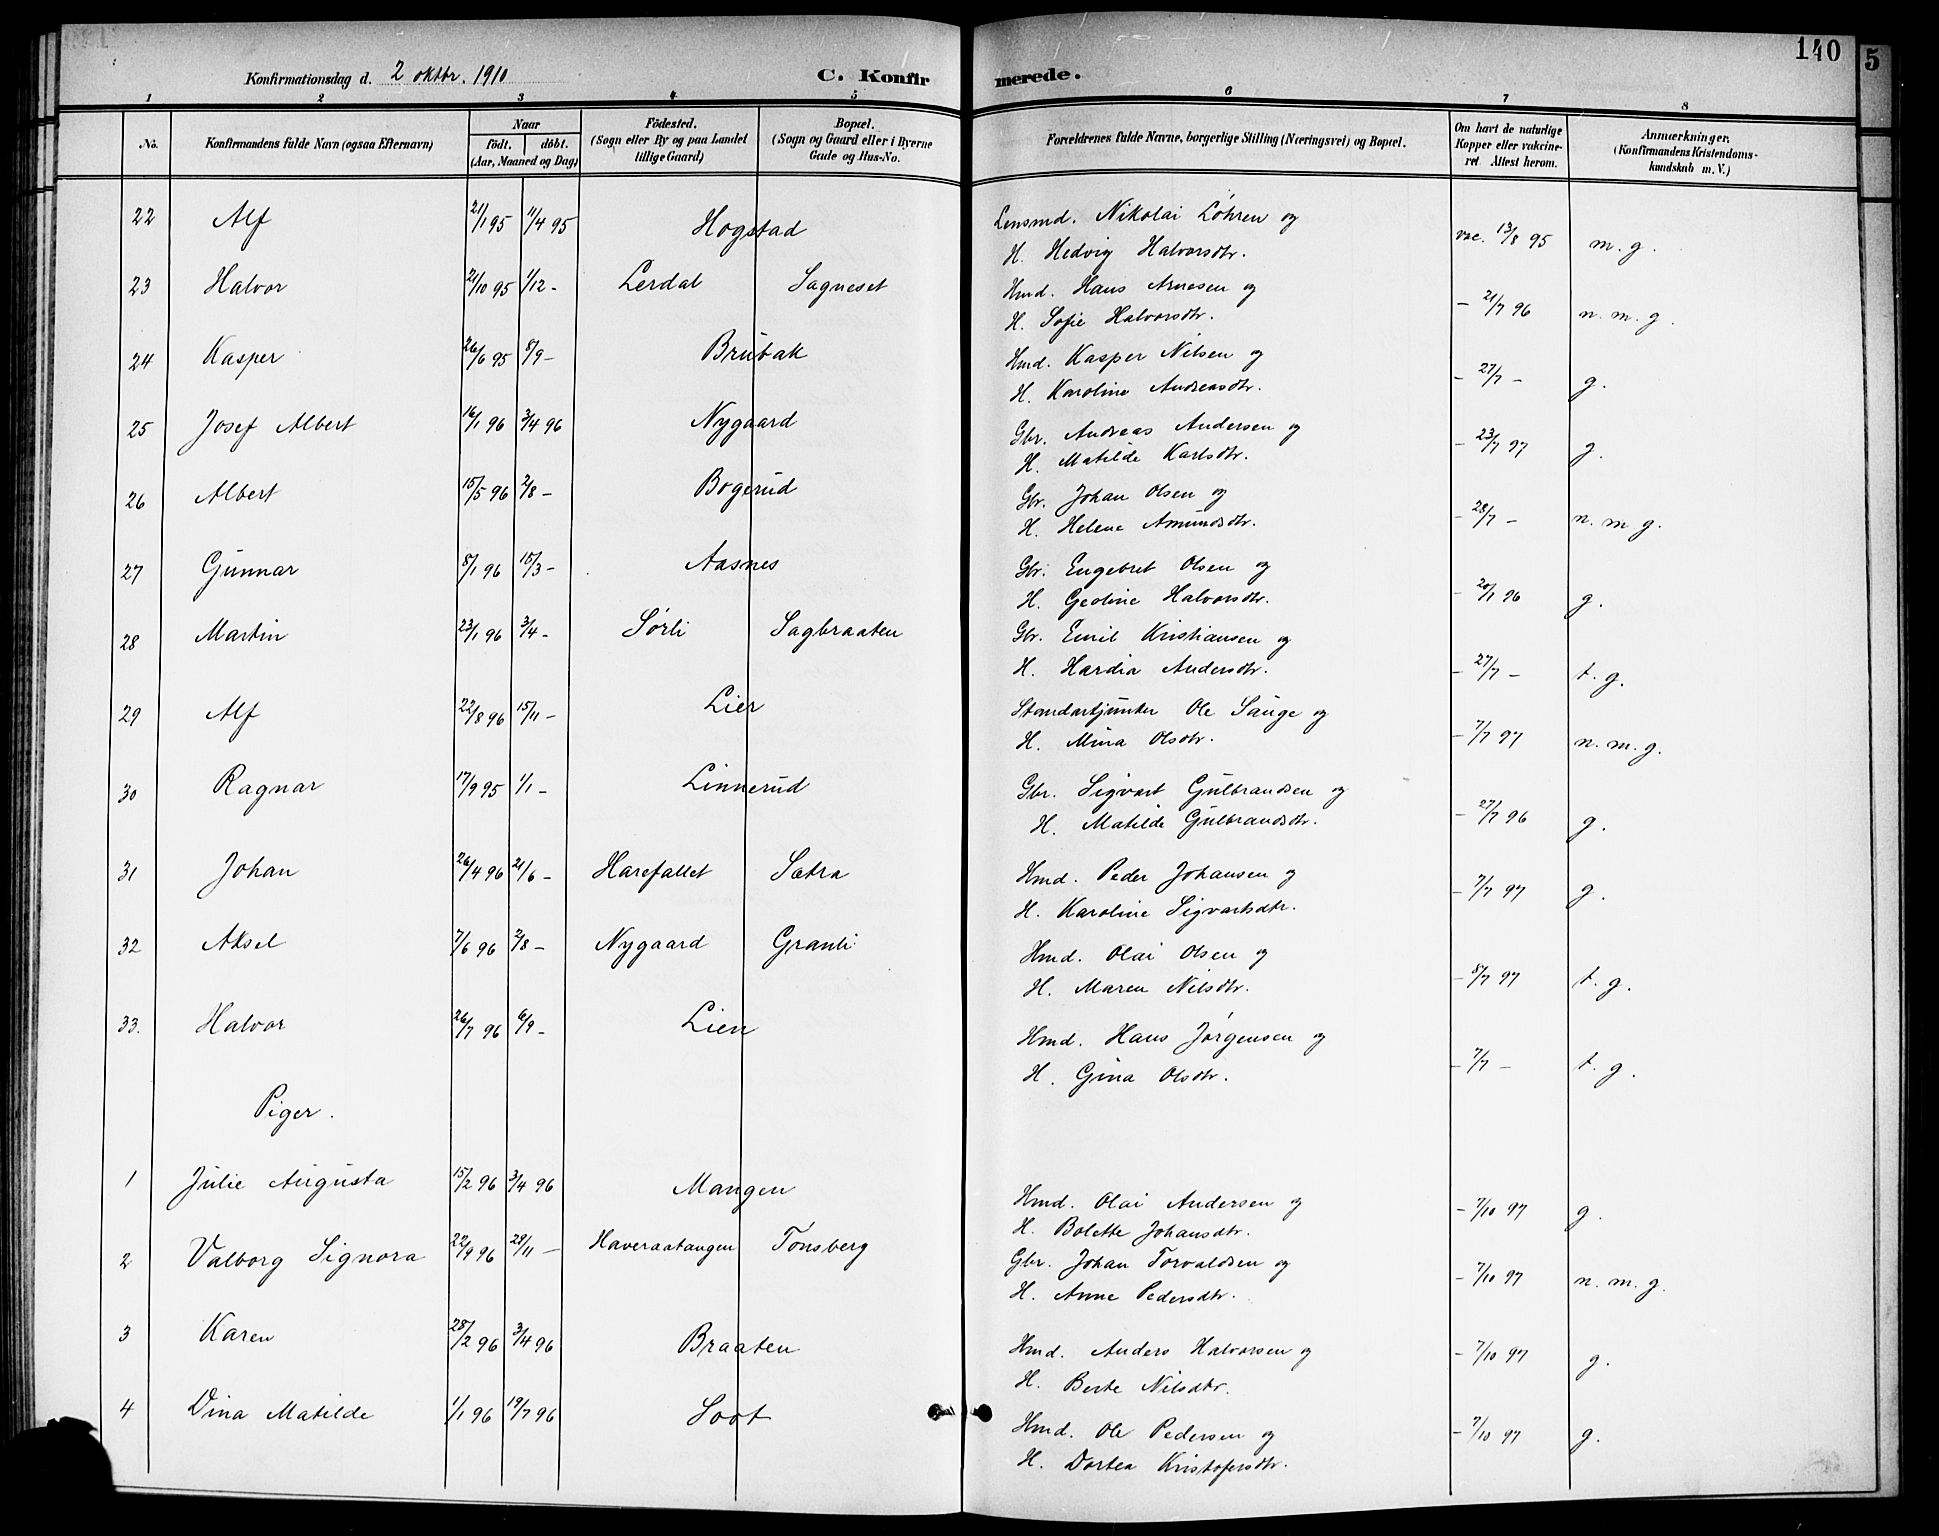 140
5
Konfirmationsdag d. 2 oktbr. 1910
C. Konfirmerede.
1 2 3 4 5 6 7 8
No.
Konfirmandens fulde Navn (ogsaa Efternavn)
Naar
födt. döbt.
(Aar, Maaned og Dag)
Födested.
(Sogn eller By og paa Landet
tillige Gaard)
Bopæl.
(Sogn og Gaard eller i Byerne
Gade og Hus-No.
Forældrenes fulde Navne, borgerlige Stilling (Næringsvei) og Bopæl.
Om havt de naturlige
Kopper eller vakcine-
ret. Attest herom.
Anmærkninger,
(Konfirmandens Kristendoms-
kundskab m. V.)
22 Alf 21/1 95 11/4 95 Hogstad Lensmd. Nikolai Löhren og
H. Hedvig Halvorsdtr. vac. 13/8 95 m. g.
23 Halvor 21/10 95 1/12 - Lerdal Sagneset Hmd. Hans Arnesen og
H. Sofie Halvorsdtr. - 21/7 96 n. m. g.
24 Kasper 26/6 95 8/9 - Brubak Hmd. Kasper Nilsen og
H. Karoline Andreasdtr. - 27/7 - g.
25 Josef Albert 16/1 96 3/4 96 Nygaard Gbr. Andreas Andersen og
H. Matilde Karlsdtr. - 23/7 97 g.
26 Albert 15/5 96 2/8 - Bogerud Gbr. Johan Olsen og
H. Helene Amundsdtr. - 28/7 - n. m. g.
27 Gunnar 8/1 96 15/3 - Aasnes Gbr. Engebret Olsen og
H. Geoline Halvorsdtr. - 20/1 96 g.
28 Martin 23/1 96 3/4 - Sørli Sagbraaten Gbr. Emil Kristiansen og
H. Hardia Andersdtr. - 27/7 - t. g.
29 Alf 22/8 96 15/11 - Lier Standartjunker Ole Sauge og
H. Mina Olsdtr. - 7/7 97 n. m. g.
30 Ragnar 17/9 95 1/1 - Linnerud Gbr. Sigvart Gulbrandsen og
H. Matilde Gulbrandsdtr. - 27/7 96 g.
31 Johan 26/4 96 21/6 - Harefallet Sætra Hmd. Peder Johansen og
H. Karoline Sigvartsdtr. - 7/7 97 g.
32 Aksel 7/6 96 2/8 - Nygaard Granli Hmd. Olai Olsen og
H. Maren Nilsdtr. - 8/7 97 t. g.
33. Halvor 26/7 96 6/9 - Lien Hmd. Hans Jørgensen og
H. Gina Olsdtr. - 7/7 - t. g.
Piger.
1 Julie Augusta 15/2 96 3/4 96 Mangen Hmd. Olai Andersen og
H. Bolette Johansdtr. - 7/10 97 g.
2 Valborg Signora 22/9 96 29/11 - Haveraatangen Tonsberg Gbr. Johan Torvaldsen og
H. Anne Pedersdtr. - 7/10 97 n. m. g.
3 Karen 28/2 96 3/4 96 Braaten Hmd. Anders Halvorsen og
H. Berte Nilsdtr. - 7/10 97 g.
4 Dina Matilde 1/1 96 19/7 96 Soot Hmd. Ole Pedersen og
H. Dortea Kristofersdtr. - 7/10 97 g.
140